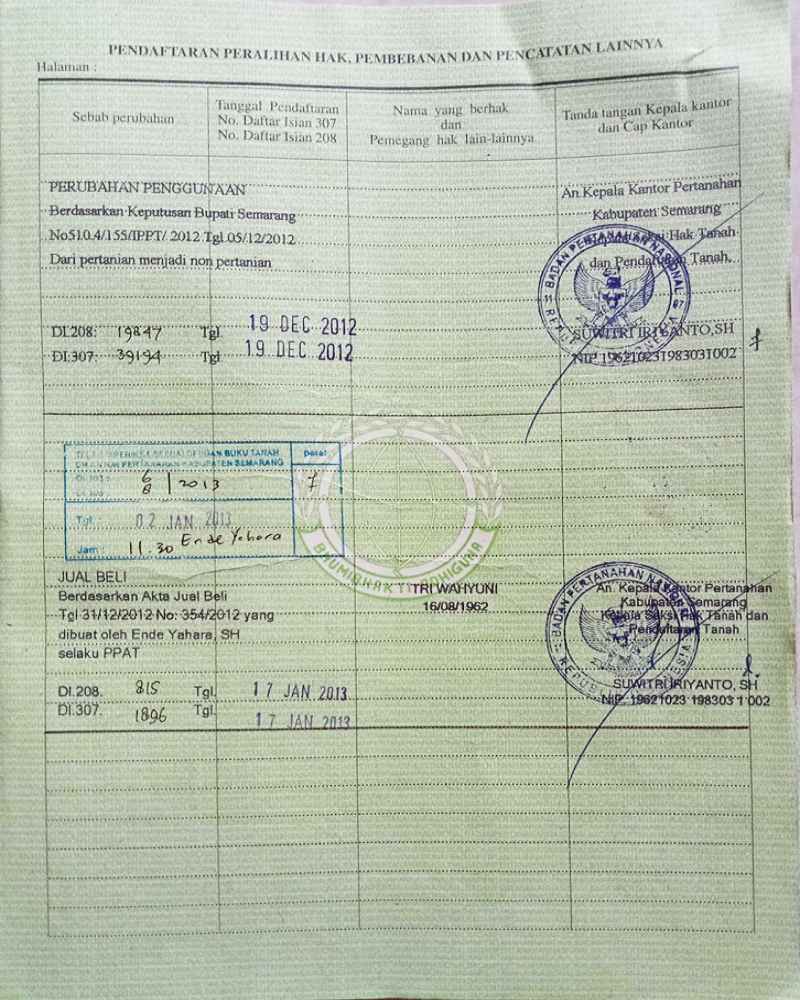 PENDAFTARAN PERALIHAN HAK, PEMBEBANAN DAN PENCATATAN LAINNYA
Halaman :
Sebab perubahan
Tanggal Pendaftaran
No. Daftar Isian 307
No. Daftar Isian 208
Nama yang berhak
dan
Pemegang hak lain-lainnya
Tanda tangan Kepala kantor
dan Cap Kantor
PERUBAHAN PENGGUNAAN
Berdasarkan Keputusan Bupati Semarang
No510.4/155/IPPT/ 2012 Tgl 05/12/2012
Dari pertanian menjadi non pertanian
An.Kepala Kantor Pertanahan
Kabupaten Semarang
Hak Tanah
dan Pendaftaran Tanah,
BADAN PERTANAHAN NASIONAL
REPUBLIK INDONESIA
DI.208: 19847 Tgl. 19 DEC 2012
DI.307: 39194 Tgl 19 DEC 2012
SUWITRI IRIYANTO,SH
NIP.196210231983031002
BUKU TANAH
KANTOR PERTANAHAN KABUPATEN SEMARANG
Paraf
6/8 / 2013
Tgl. : 02 JAN 2013
Jam : 11.30 Ende Yahara
BHUMI BHAKTI ADHIGUNA
JUAL BELI
Berdasarkan Akta Jual Beli
Tgl 31/12/2012 No: 354/2012 yang
dibuat oleh Ende Yahara, SH
selaku PPAT
TRI WAHYUNI
16/08/1962
An. Kepala Kantor Pertanahan
Kabupaten Semarang
Kepala Seksi Hak Tanah dan
Pendaftaran Tanah
BADAN PERTANAHAN NASIONAL
REPUBLIK INDONESIA
DI.208. 815 Tgl. 17 JAN 2013
DI.307. 1896 Tgl. 17 JAN 2013
SUWITRI IRIYANTO, SH
NIP. 19621023 198303 1 002